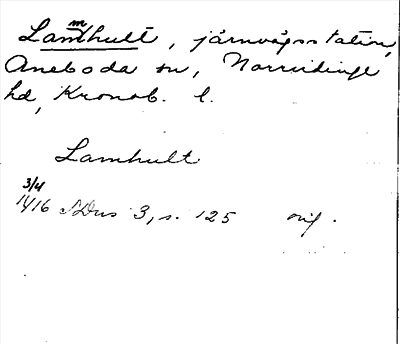 Lamhult, järnvägsstation,
Aneboda sn, Norrvidinge
hd, Kronob. l.
Lamhult
3/4
1416 SDns 3, s. 125 orig.